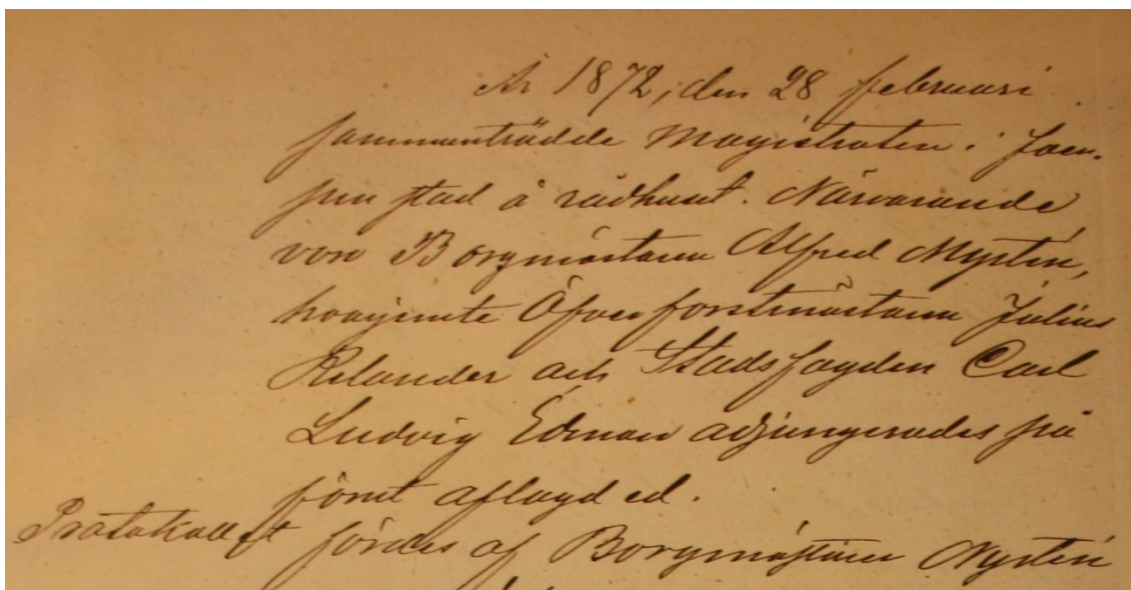 År 1872, den 28 februari
sammanträdde Magistraten i Joen-
suu stad å rådhuset. Närvarande
voro Borgmästaren Alfred Nystén,
hvarjemte Öfverforstmästaren Julius
Relander och Stadsfogden Carl
Ludvig Edman adjungerades på
förut aflagd ed.
Protokollet fördes af Borgmästaren Nystén